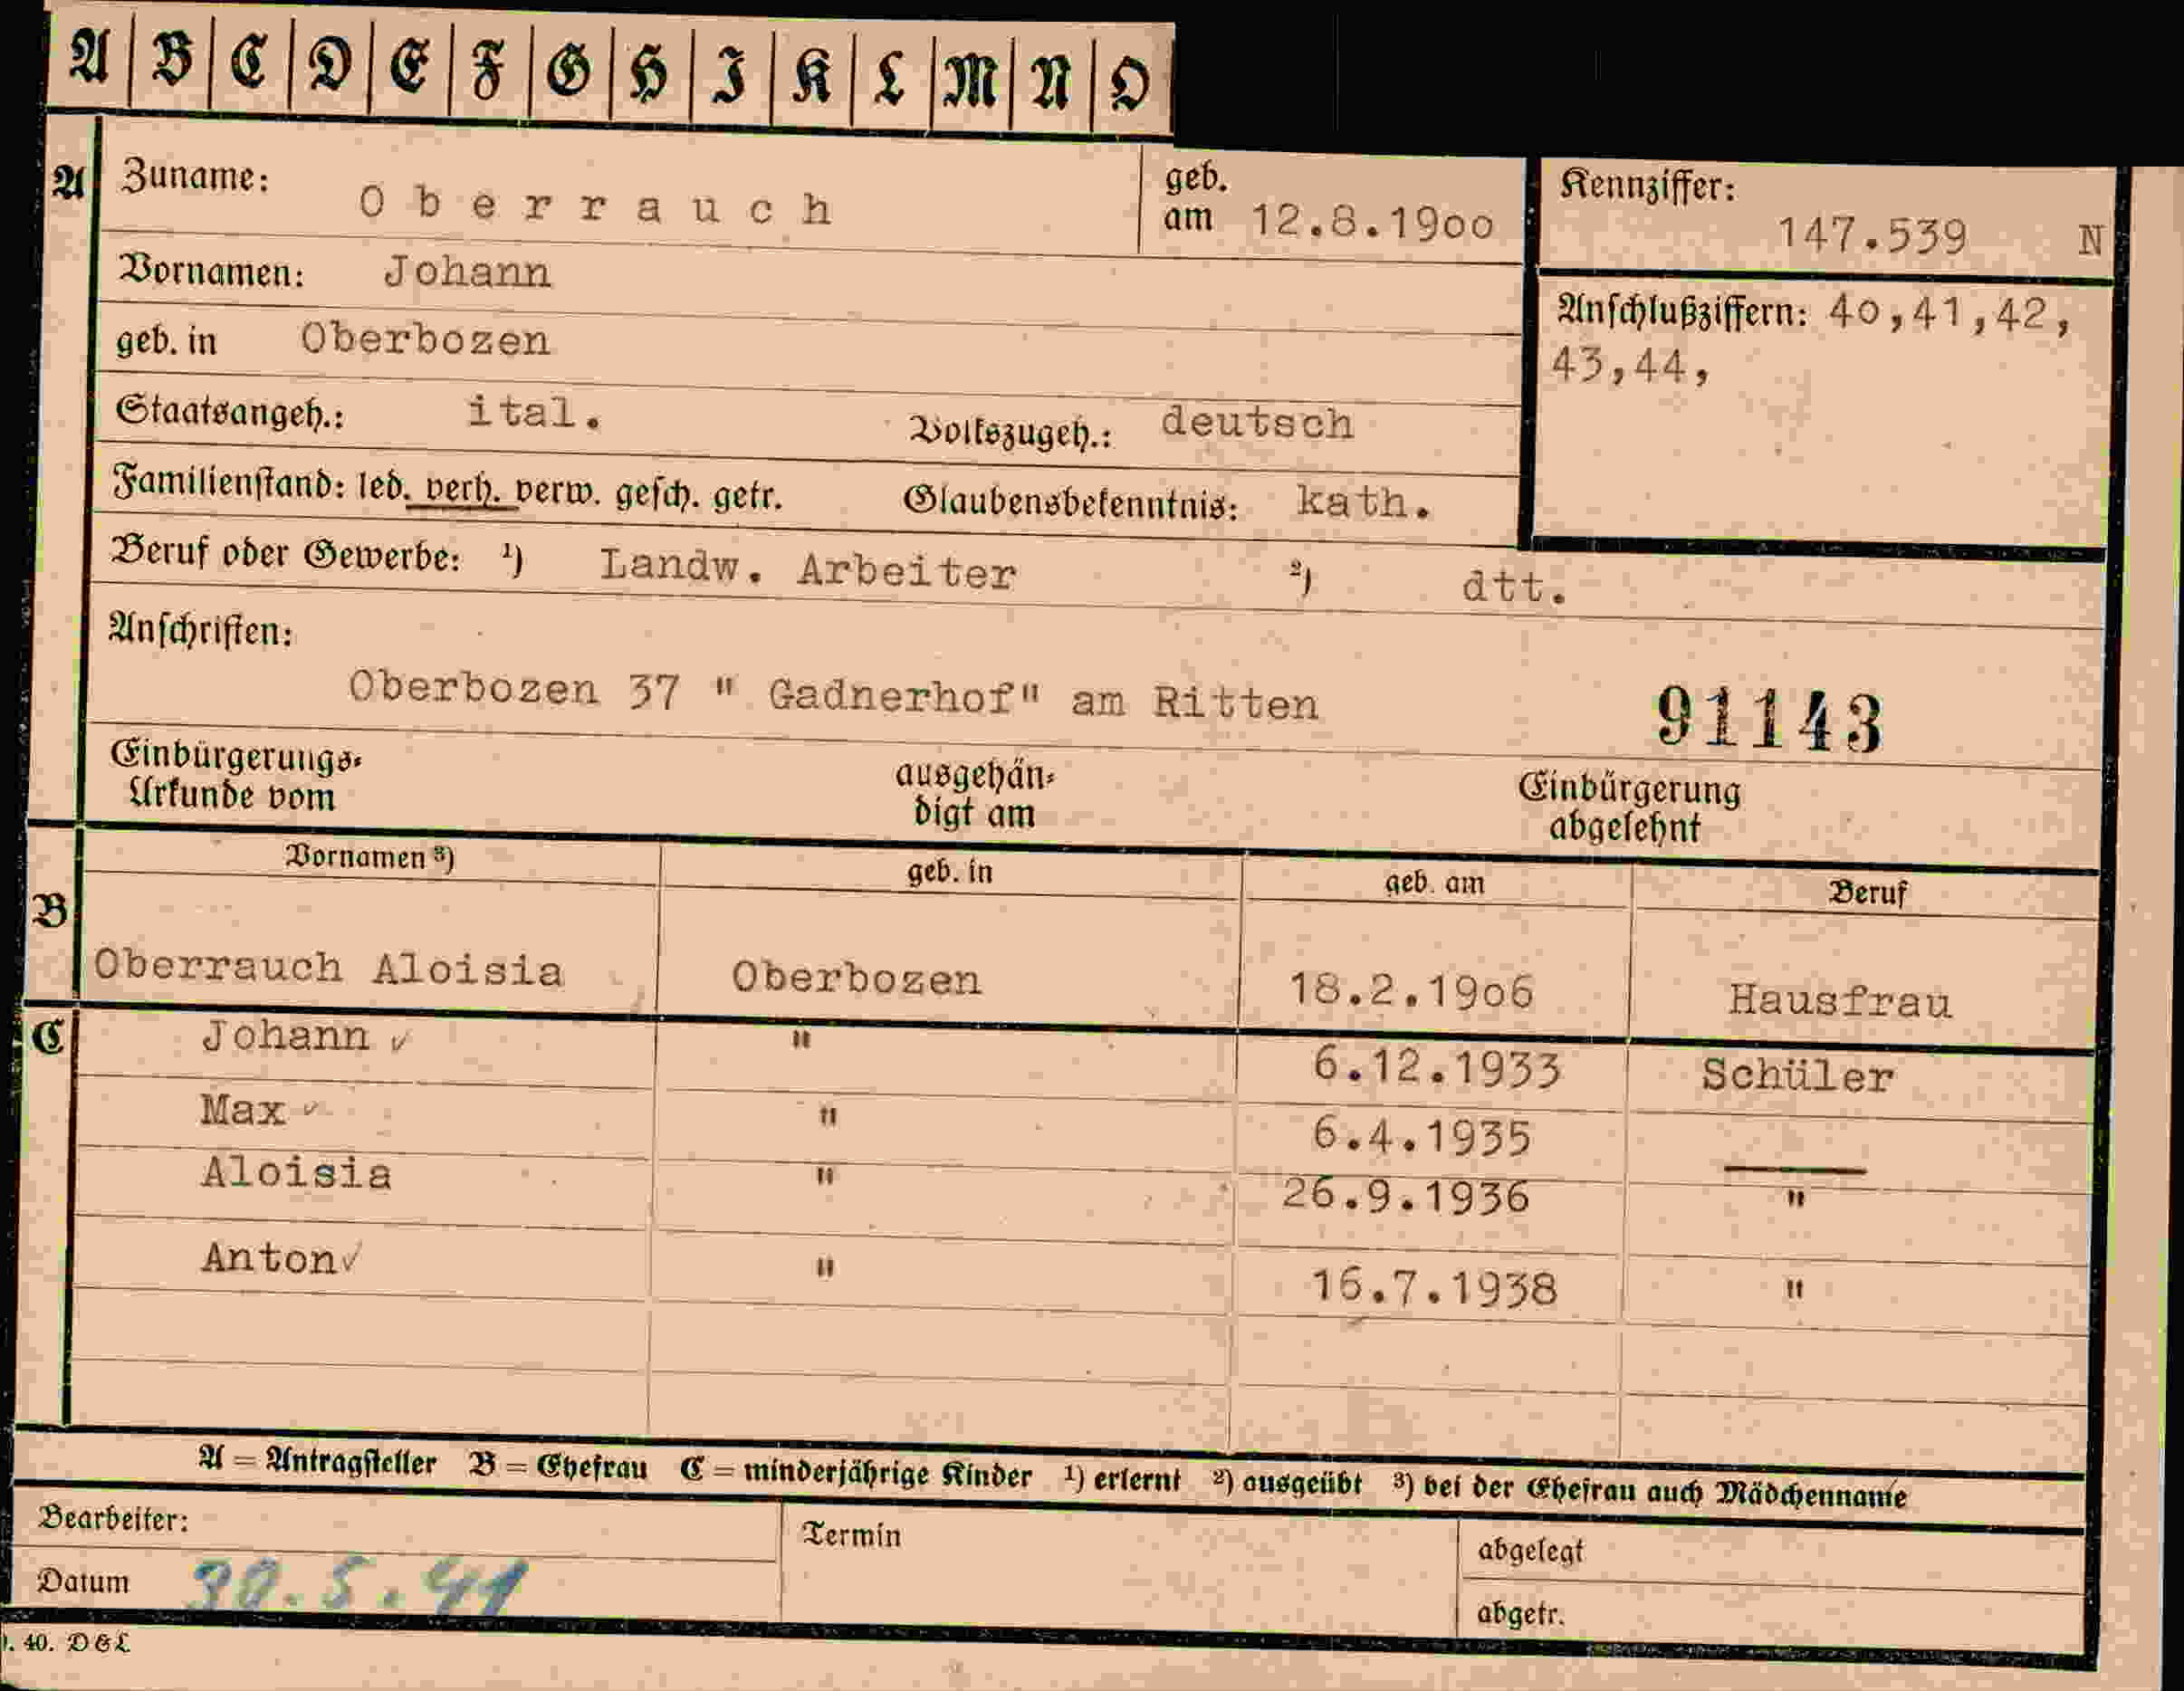 A B C D E F G H I K L M N O
A Zuname: Oberrauch geb. am 12.8.1900 Kennziffer: 147.539 N
Vornamen: Johann
Anschlußziffern: 40,41,42,
43,44,
geb. in Oberbozen
Staatsangeh.: ital. Volkszugeh.: deutsch
Familienstand: led. verh. verw. gesch. getr. Glaubensbekenntnis: kath.
Beruf oder Gewerbe: ¹) Landw. Arbeiter ²) dtt.
Anschriften:
Oberbozen 37 " Gadnerhof" am Ritten 91143
Einbürgerungs-
Urkunde vom
ausgehän-
digt am
Einbürgerung
abgelehnt
Vornamen ³) geb. in geb. am Beruf
B Oberrauch Aloisia Oberbozen 18.2.1906 Hausfrau
C Johann ✓ " 6.12.1933 Schüler
Max ✓ " 6.4.1935 —
Aloisia " 26.9.1936 "
Anton ✓ " 16.7.1938 "
A = Antragsteller B = Ehefrau C = minderjährige Kinder ¹) erlernt ²) ausgeübt ³) bei der Ehefrau auch Mädchenname
Bearbeiter: Termin abgelegt
Datum 30.5.41 abgetr.
. 40. D&L